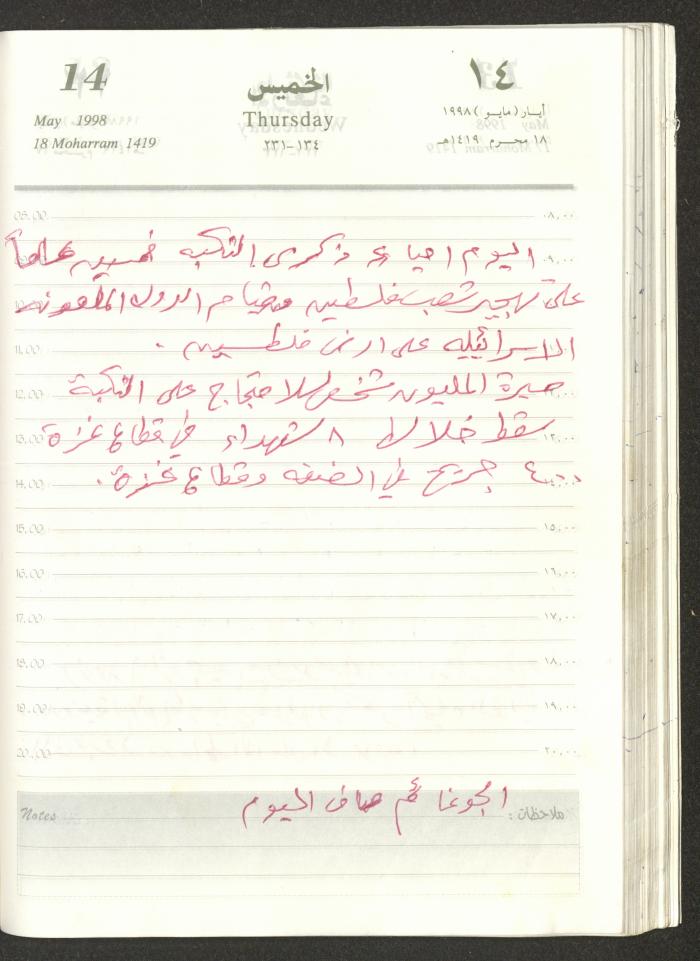 14 الخميس ١٤
May 1998 Thursday أيار (مايو) ١٩٩٨
18 Moharram 1419 ١٣٤-٢٣١ ١٨ محرم ١٤١٩هـ
08.00 ٠٨,٠٠
اليوم احياء ذكرى النكبه خمسين عاماً ٠٩,٠٠
على تهجير شعب فلسطين وقيام الدولة الملعونه
11.00 الاسرائيليه على ارض فلسطين .
12.00 مسيرة المليون شخص للاحتجاج على النكبة
13.00 سقط خلالها ٨ شهداء في قطاع غزة ١٣,٠٠
14.00 ٤٠٠ جريح في الضفه وقطاع غزة .
15.00 ١٥,٠٠
16.00 ١٦,٠٠
17.00 ١٧,٠٠
18.00 ١٨,٠٠
19.00 ١٩,٠٠
20.00 ٢٠,٠٠
الجو غائم صاف اليوم
Notes ملاحظات :